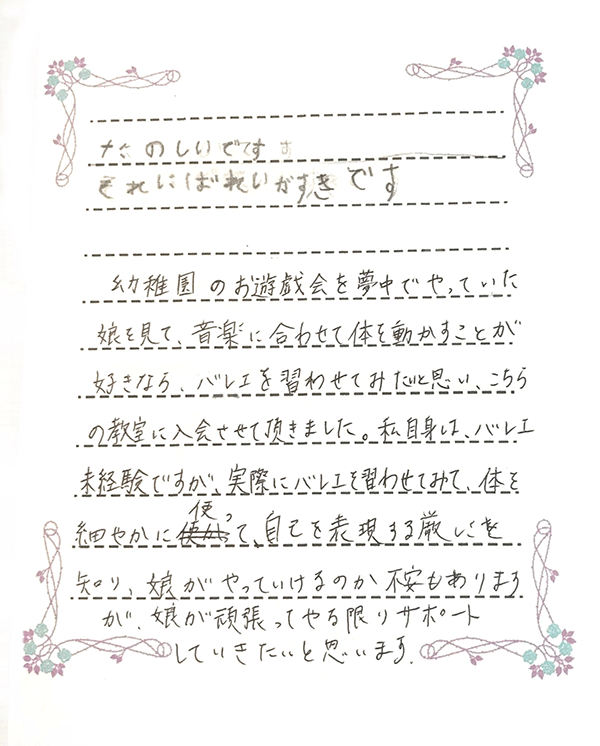 たのしいです
それにばれいがすきです
幼稚園のお遊戯会を夢中でやっていた
娘を見て、音楽に合わせて体を動かすことが
好きなら、バレエを習わせてみたいと思い、こちら
の教室に入会させて頂きました。私自身は、バレエ
未経験ですが、実際にバレエを習わせてみて、体を
細やかに使って、自己を表現する厳しさを
知り、娘がやっていけるのか不安もあります
が、娘が頑張ってやる限りサポート
していきたいと思います。